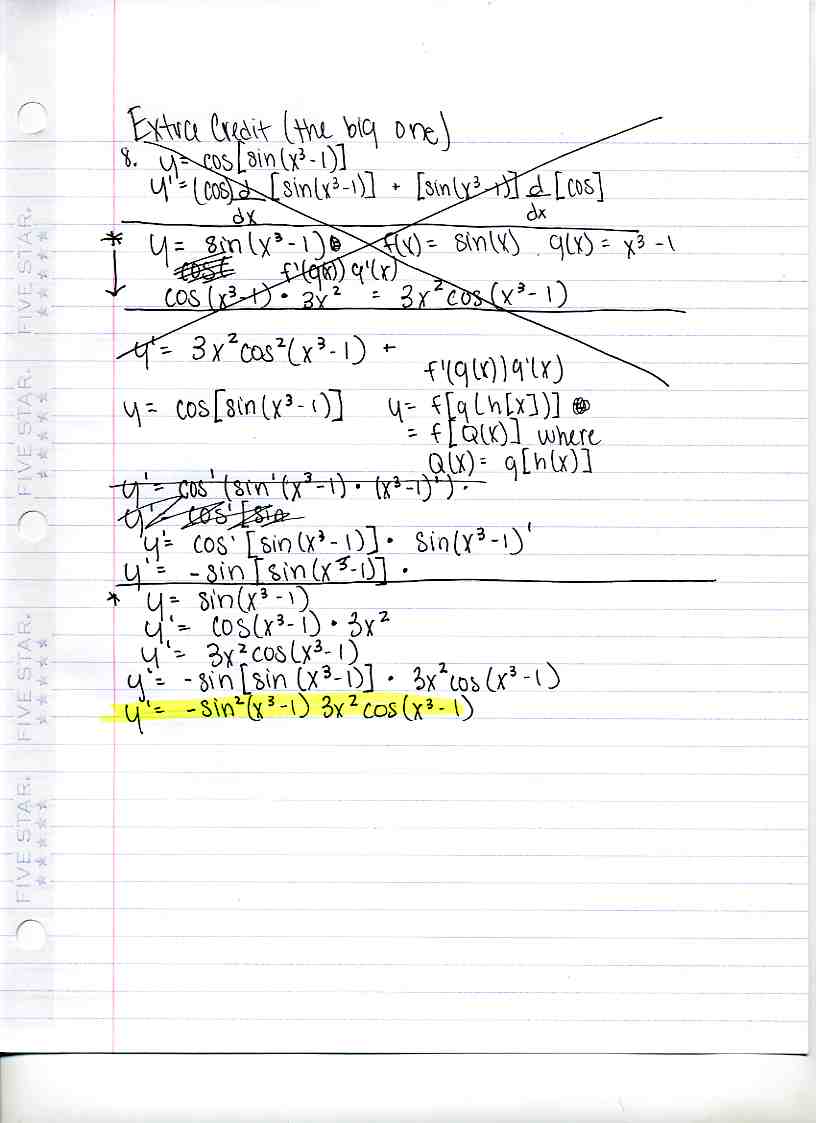 Extra Credit (the big one)
8. y = cos[sin(x³-1)]
y' = (cos) d/dx [sin(x³-1)] + [sin(x³-1)] d/dx [cos]
* y = sin(x³-1) f(x) = sin(x) g(x) = x³-1
cos( f'(g(x)) g'(x)
cos(x³-1) · 3x² = 3x²cos(x³-1)
y' = 3x²cos²(x³-1) +
f'(g(x)) g'(x)
y = cos[sin(x³-1)] y = f[g(h[x])]
= f[Q(x)] where
Q(x) = g[h(x)]
y' = cos'(sin'(x³-1) · (x³-1)') ·
y' = cos'[sin
y' = cos'[sin(x³-1)] · sin(x³-1)'
y' = -sin[sin(x³-1)] ·
* y = sin(x³-1)
y' = cos(x³-1) · 3x²
y' = 3x²cos(x³-1)
y' = -sin[sin(x³-1)] · 3x²cos(x³-1)
y' = -sin²(x³-1) 3x²cos(x³-1)
FIVE STAR.
FIVE STAR.
FIVE STAR.
FIVE STAR.